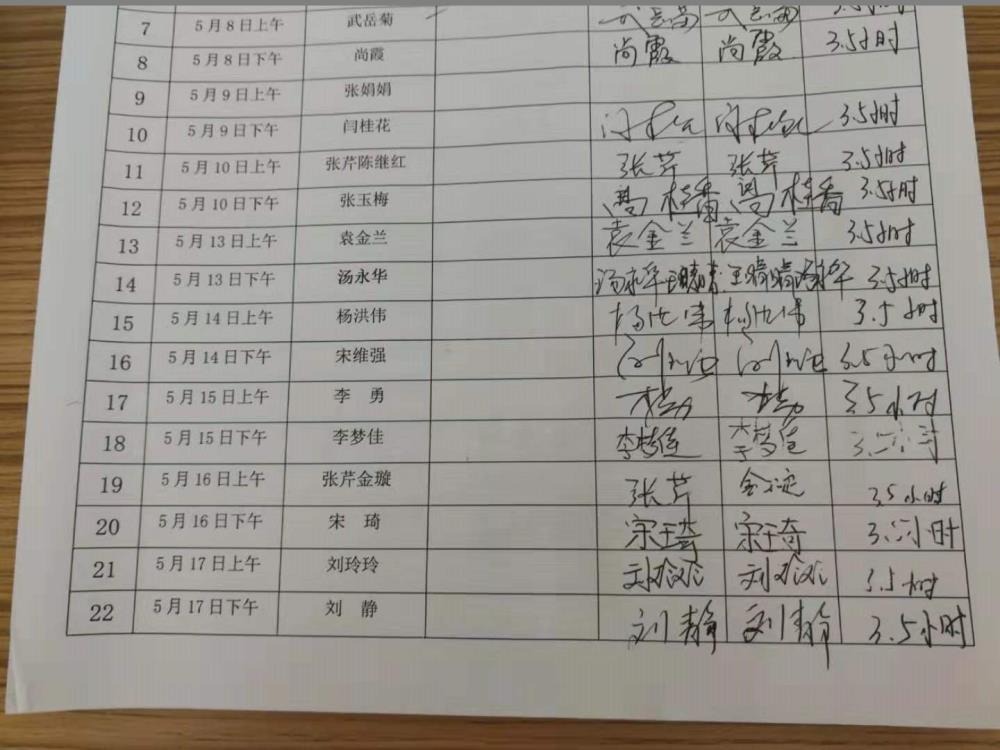 7 5月8日上午 武岳菊 3.5小时
8 5月8日下午 尚霞 尚霞 尚霞 3.5小时
9 5月9日上午 张娟娟
10 5月9日下午 闫桂花 3.5小时
11 5月10日上午 张芹陈继红 张芹 张芹 3.5小时
12 5月10日下午 张玉梅 3.5小时
13 5月13日上午 袁金兰 袁金兰 袁金兰 3.5小时
14 5月13日下午 汤永华 汤永华 王晴晴 3.5小时
15 5月14日上午 杨洪伟 杨洪伟 杨洪伟 3.5小时
16 5月14日下午 宋维强 3.5小时
17 5月15日上午 李 勇 李勇 李勇 3.5小时
18 5月15日下午 李梦佳 李梦佳 李梦佳 3.5小时
19 5月16日上午 张芹金璇 张芹 3.5小时
20 5月16日下午 宋 琦 宋琦 宋琦 3.5小时
21 5月17日上午 刘玲玲 刘玲玲 刘玲玲 3.5小时
22 5月17日下午 刘 静 刘静 刘静 3.5小时